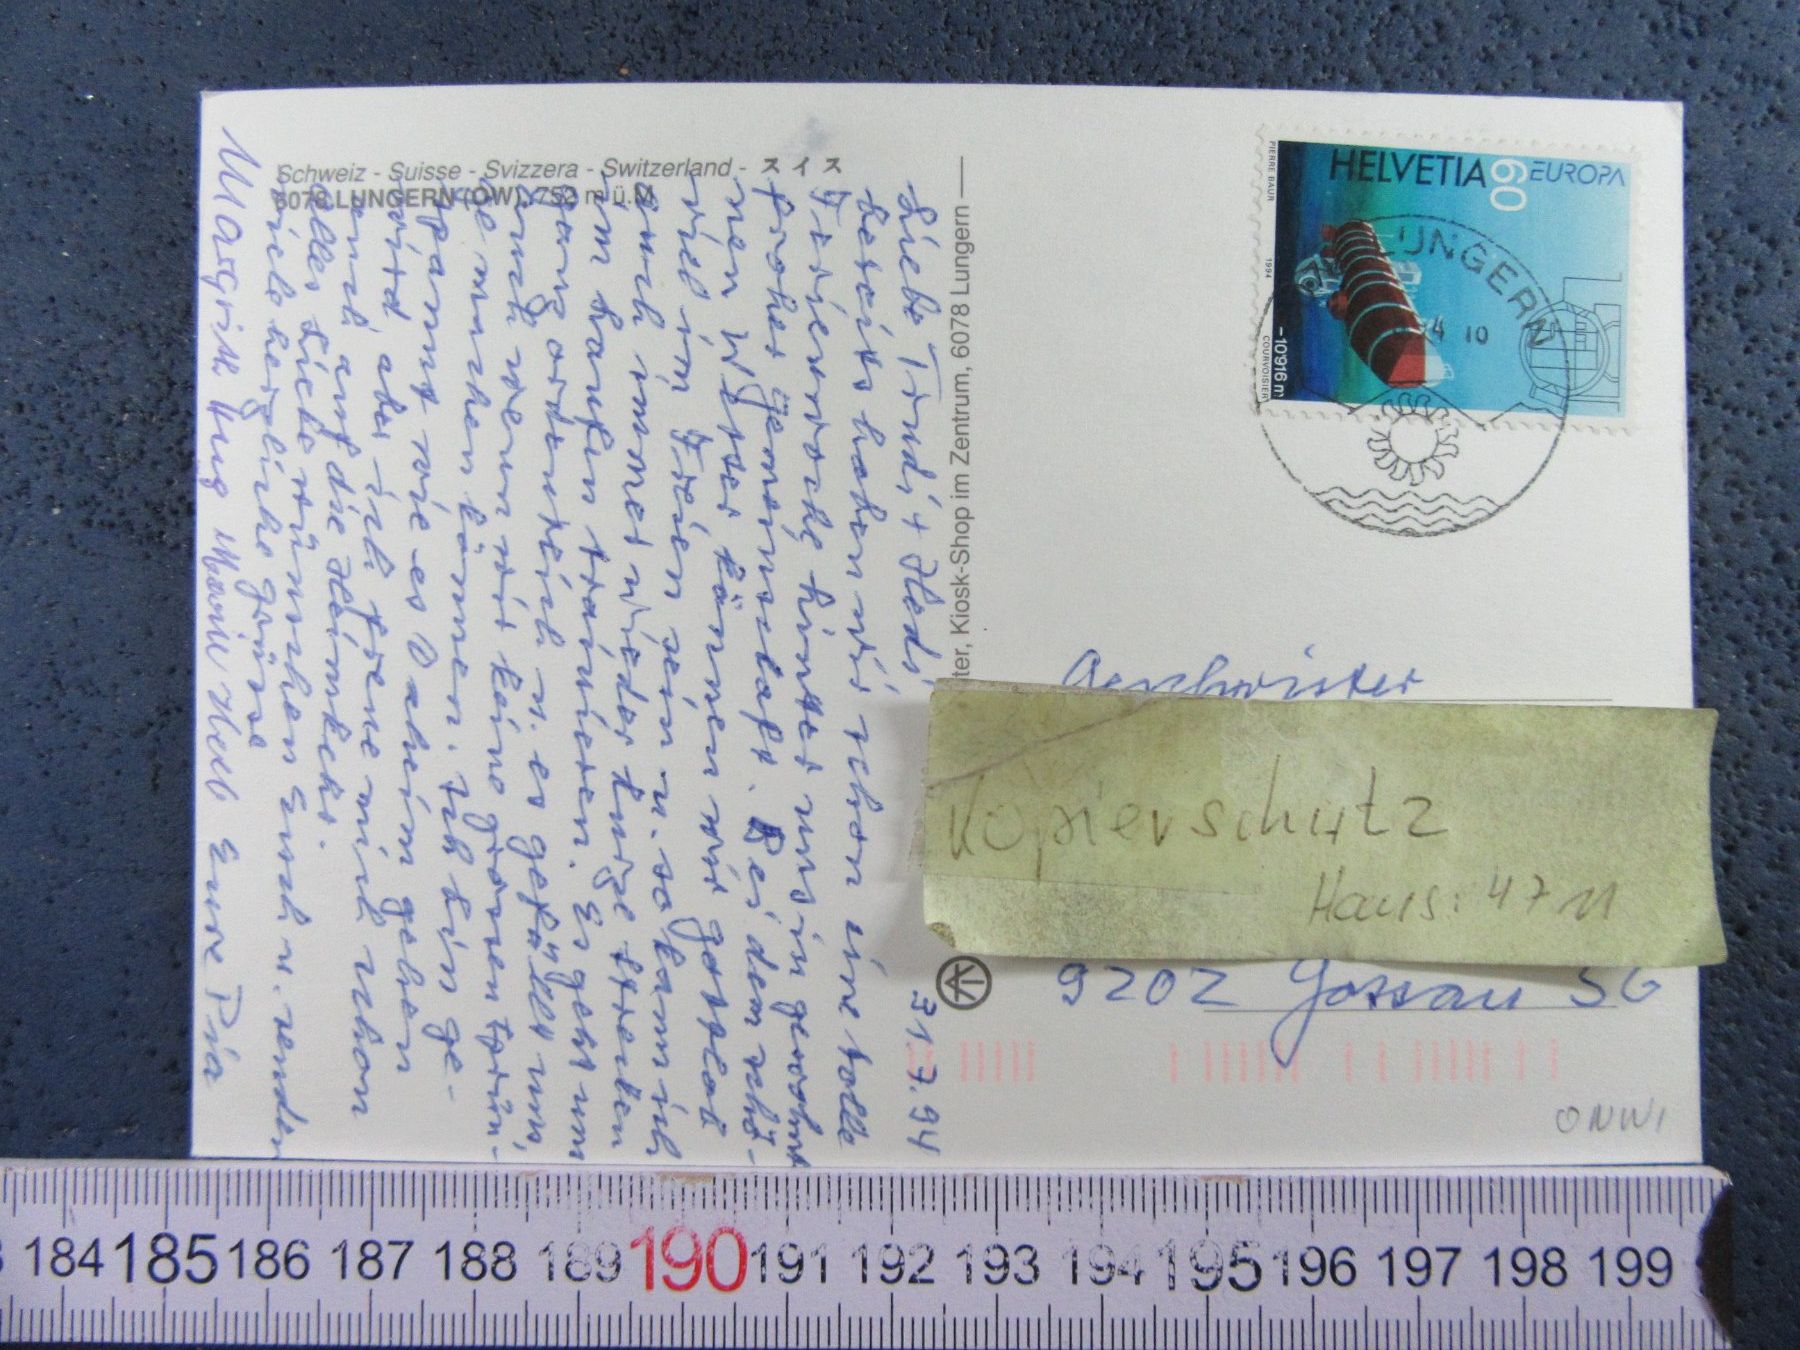 Schweiz - Suisse - Svizzera - Switzerland - スイス
6078 LUNGERN (OW), 752 m ü.M
ter, Kiosk-Shop im Zentrum, 6078 Lungern
31.7.94
Liebe Trudi + Hedi
Bereits haben wir schon eine tolle
Ferienwoche hinter uns in gewohnt
froher Gemeinschaft. Bei dem schö-
nen Wetter können wir gottlob
viel im Freien sein u. so kann ich
auch immer wieder kurze Strecken
im Laufen trainieren. Es geht uns
ganz ordentlich u. es gefällt uns,
auch wenn wir keine grossen Sprün-
ge machen können. Ich bin ge-
spannt wie es daheim gehen
wird, aber ich freue mich schon
auch auf die Heimkehr.
Alles Liebe wünschen Euch u. senden
viele herzliche Grüsse
Margrith Hug Marie Heeb Eure Pia
HELVETIA 60 EUROPA
PIERRE BAUR
1994
COURVOISIER
-10916 m
LUNGERN
94 10
Geschwister
Kopierschutz
Haus: 4711
9202 Gossau SG
ONW1
184 185 186 187 188 189 190 191 192 193 194 195 196 197 198 199